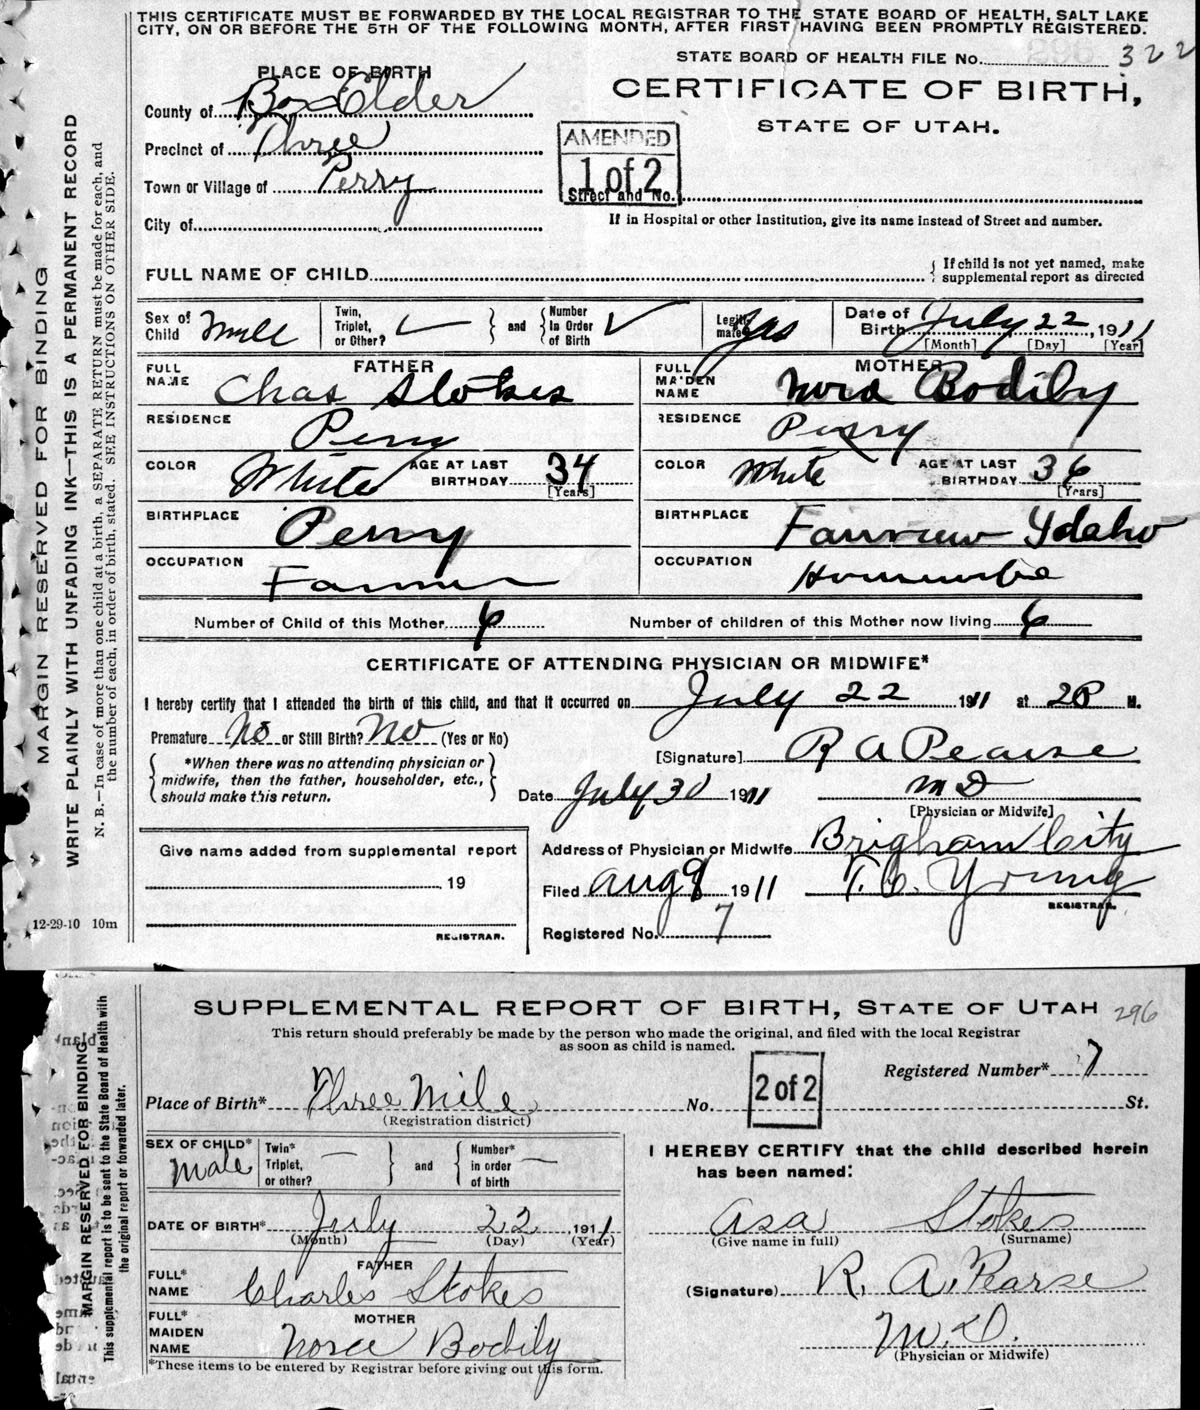 THIS CERTIFICATE MUST BE FORWARDED BY THE LOCAL REGISTRAR TO THE STATE BOARD OF HEALTH, SALT LAKE
CITY, ON OR BEFORE THE 5TH OF THE FOLLOWING MONTH, AFTER FIRST HAVING BEEN PROMPTLY REGISTERED.
STATE BOARD OF HEALTH FILE No. 322
PLACE OF BIRTH
CERTIFICATE OF BIRTH,
STATE OF UTAH.
County of Box Elder
Precinct of Three
Town or Village of Perry
City of
AMENDED
1 of 2
Street and No.
If in Hospital or other Institution, give its name instead of Street and number.
FULL NAME OF CHILD
If child is not yet named, make
supplemental report as directed
Sex of Child Male
Twin, Triplet, or Other?
and
Number In Order of Birth
Legitimate? Yes
Date of Birth July 22, 1911
[Month] [Day] [Year]
FATHER
FULL NAME Chas Stokes
MOTHER
FULL MAIDEN NAME Nora Bodiby
RESIDENCE Perry
RESIDENCE Perry
COLOR White AGE AT LAST BIRTHDAY 34 [Years]
COLOR White AGE AT LAST BIRTHDAY 36 [Years]
BIRTHPLACE Perry
BIRTHPLACE Fairview Ydaho
OCCUPATION Farmer
OCCUPATION Housewife
Number of Child of this Mother 6
Number of children of this Mother now living 6
CERTIFICATE OF ATTENDING PHYSICIAN OR MIDWIFE*
I hereby certify that I attended the birth of this child, and that it occurred on July 22 1911 at 2P M.
Premature No or Still Birth? No (Yes or No)
*When there was no attending physician or
midwife, then the father, householder, etc.,
should make this return.
[Signature] R A Pearse
Date July 30 1911 MD
[Physician or Midwife]
Address of Physician or Midwife Brigham City
Filed Aug 9 1911 T. C. Young
REGISTRAR.
Registered No. 7
Give name added from supplemental report
19
REGISTRAR.
12-29-10 10m
MARGIN RESERVED FOR BINDING
WRITE PLAINLY WITH UNFADING INK—THIS IS A PERMANENT RECORD
N. B.—In case of more than one child at a birth, a SEPARATE RETURN must be made for each, and
the number of each, in order of birth, stated. SEE INSTRUCTIONS ON OTHER SIDE.
SUPPLEMENTAL REPORT OF BIRTH, STATE OF UTAH 296
This return should preferably be made by the person who made the original, and filed with the local Registrar
as soon as child is named.
2 of 2
Registered Number* 7
Place of Birth* Three Mile No. St.
(Registration district)
SEX OF CHILD* Male
Twin* Triplet, or other? —
and
Number* in order of birth —
DATE OF BIRTH* July 22 1911
(Month) (Day) (Year)
FATHER
FULL* NAME Charles Stokes
MOTHER
FULL* MAIDEN NAME Norah Bodily
*These items to be entered by Registrar before giving out this form.
I HEREBY CERTIFY that the child described herein
has been named:
Asa Stokes
(Give name in full) (Surname)
(Signature) R. A. Pearse
M. D.
(Physician or Midwife)
MARGIN RESERVED FOR BINDING
This supplemental report is to be sent to the State Board of Health with
the original report or forwarded later.